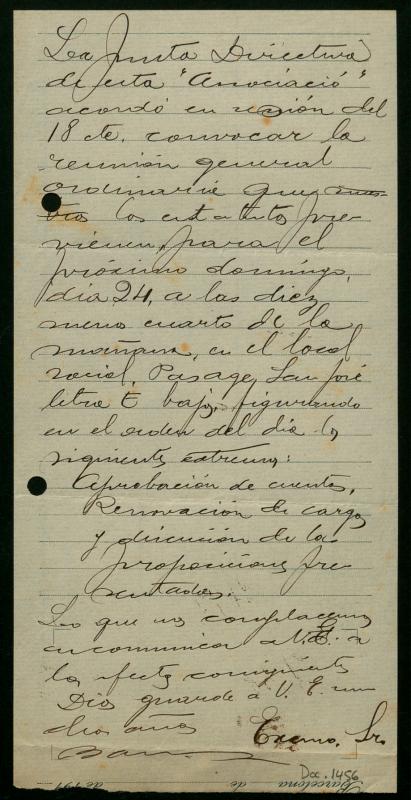 La Junta Directiva
de esta "Associació"
acordó en sesión del
18 cte. convocar la
reunión general
ordinaria que nues-
tros los estatutos pre-
vienen, para el
próximo domingo,
día 24, a las diez
menos cuarto de la
mañana, en el local
social, Pasage San José
letra E bajos, figurando
en el orden del día los
siguientes extremos:
Aprobación de cuentas,
Renovación de cargos
y discusión de las
proposiciones pre
sentadas.
Lo que nos complacemos
en comunicar a V.E. a
los efectos consiguientes
Dios guarde a V. E. mu
chos años
Excmo. Sr.
Doc. 1456
Barcelona de de 191